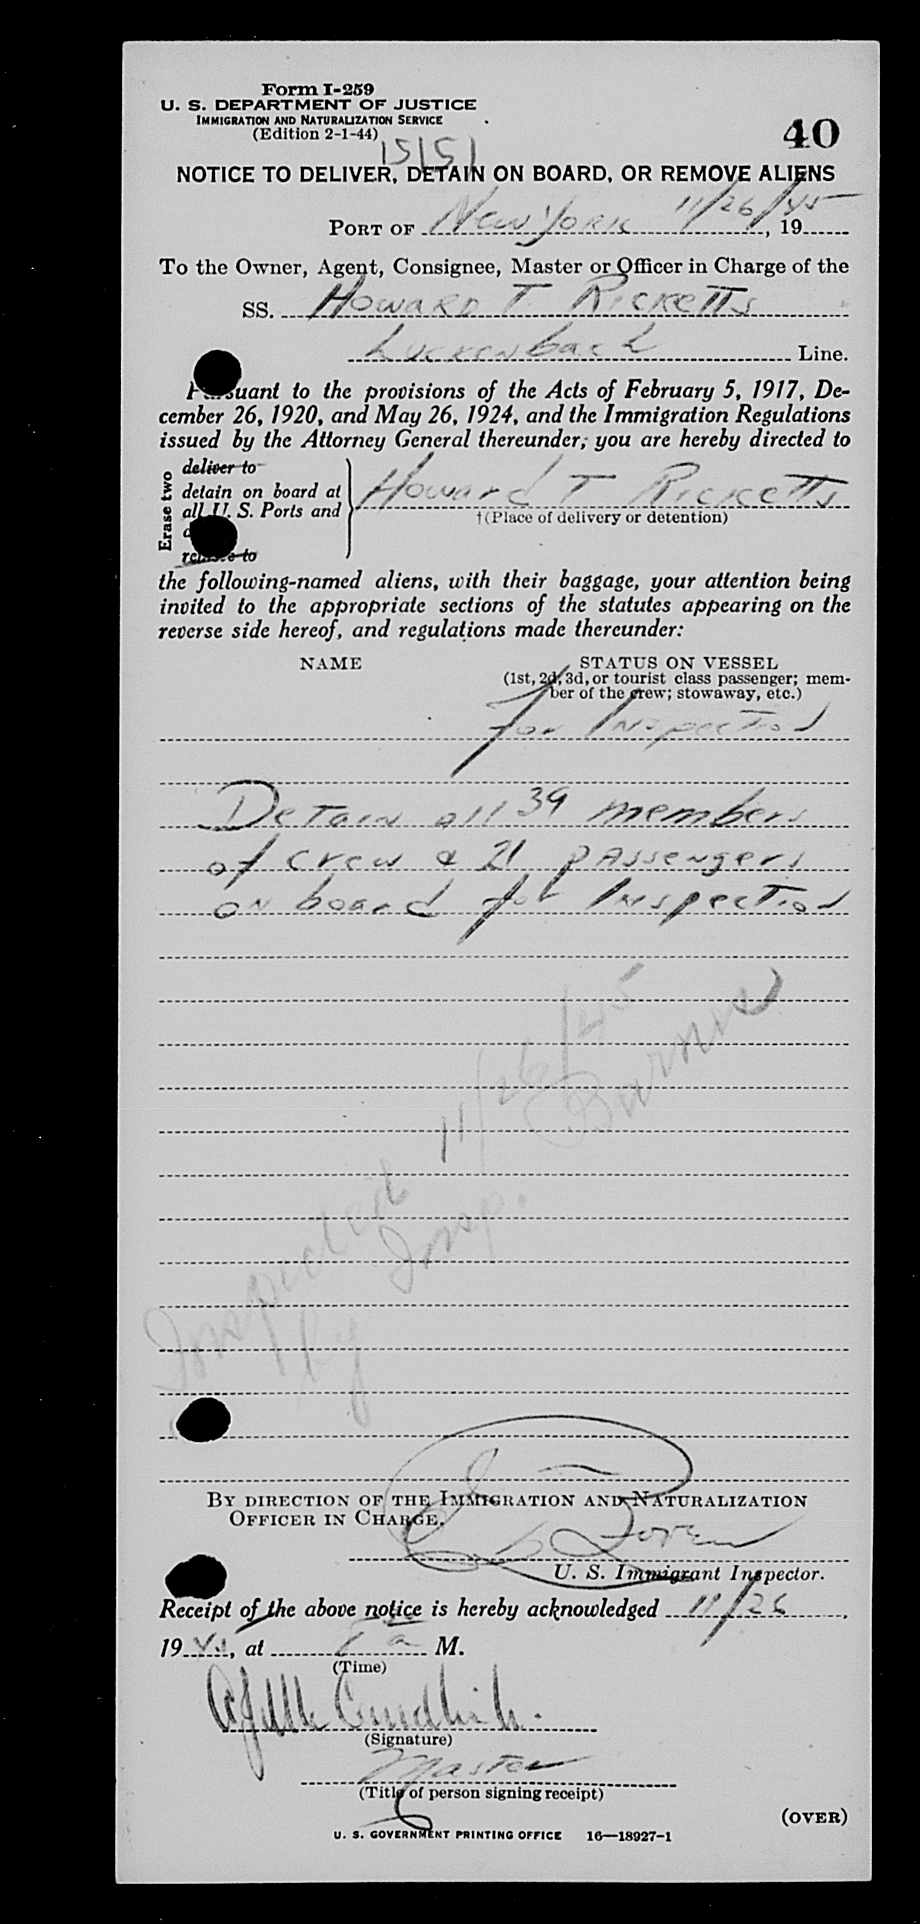 Form I-259
U. S. DEPARTMENT OF JUSTICE
IMMIGRATION AND NATURALIZATION SERVICE
(Edition 2-1-44)
15151
40
NOTICE TO DELIVER, DETAIN ON BOARD, OR REMOVE ALIENS
PORT OF New York 11/26/45, 19
To the Owner, Agent, Consignee, Master or Officer in Charge of the
SS. Howard T Ricketts
Luckenbach Line.
Pursuant to the provisions of the Acts of February 5, 1917, De-
cember 26, 1920, and May 26, 1924, and the Immigration Regulations
issued by the Attorney General thereunder, you are hereby directed to
Erase two
deliver to
detain on board at
all U. S. Ports and
remove to
Howard T Ricketts
†(Place of delivery or detention)
the following-named aliens, with their baggage, your attention being
invited to the appropriate sections of the statutes appearing on the
reverse side hereof, and regulations made thereunder:
NAME
STATUS ON VESSEL
(1st, 2d, 3d, or tourist class passenger; mem-
ber of the crew; stowaway, etc.)
for Inspection
Detain all 39 members
of crew & 21 passengers
on board for Inspection
Inspected 11/26/45
by Insp. Barnes
BY DIRECTION OF THE IMMIGRATION AND NATURALIZATION
OFFICER IN CHARGE.
U. S. Immigrant Inspector.
Receipt of the above notice is hereby acknowledged 11/26,
1945, at a M.
(Time)
(Signature)
Master
(Title of person signing receipt)
(OVER)
U. S. GOVERNMENT PRINTING OFFICE 16—18927-1